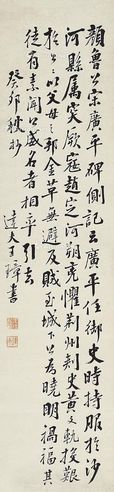 顏魯公宋廣平碑側記云廣平任御史時持服於沙
河縣屬突厥寇趙定河朔兇懼荊州刺史黃文軌投艱
於公〃以父母之邦金革無避及賊至城下公爲曉明禍福其
徒有素聞公威名者相率引去
癸卯秋杪
達夫王書